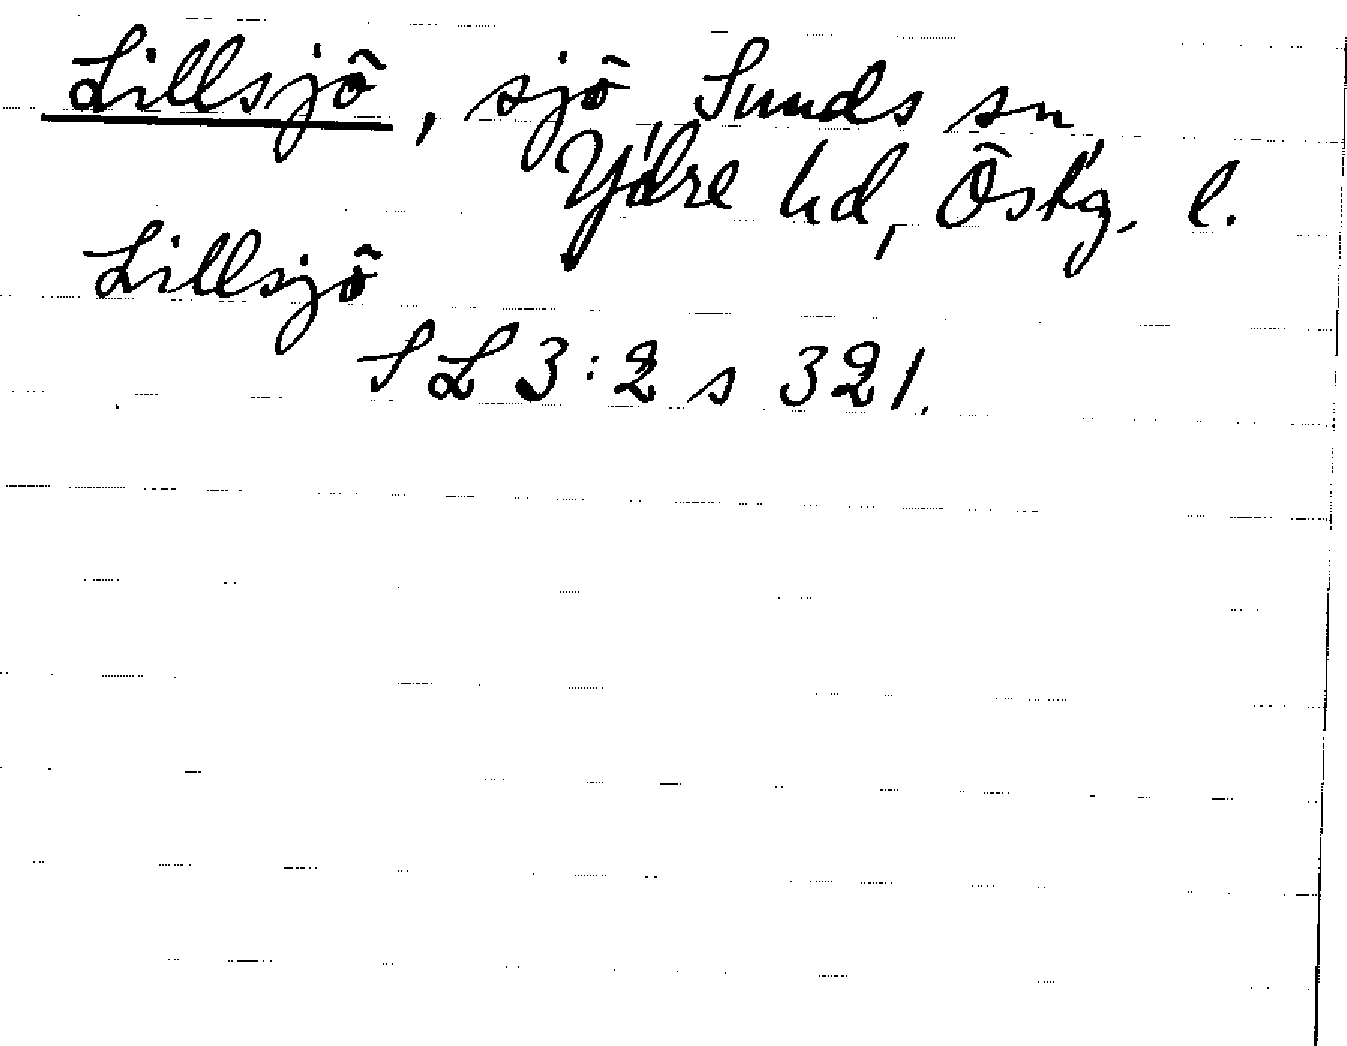 Lillsjö, sjö, Sunds sn,
Ydre hd, Östg. l.
Lillsjö
SL 3:2 s 321.